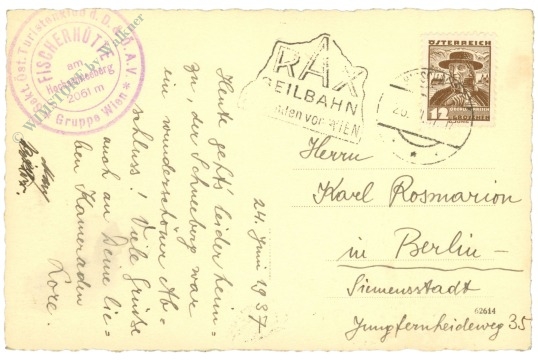 Sekt. Öst. Touristenklub d. D. u. Ö. A. V.
FISCHERHÜTTE
am
Hochschneeberg
2051 m
Gruppe Wien
WIMSTORY by Walkner
RAX
SEILBAHN
WIEN
ÖSTERREICH
12
GROSCHEN
24. Juni 1937
Heute geht's leider heim-
zu, der Schneeberg war
ein wunderschöner Ab-
schluss! Viele Grüße
auch an Deine lie-
ben Kameraden
Lore.
Herrn
Karl Rosmarion
in Berlin –
Siemensstadt
Jungfernheideweg 35
62614